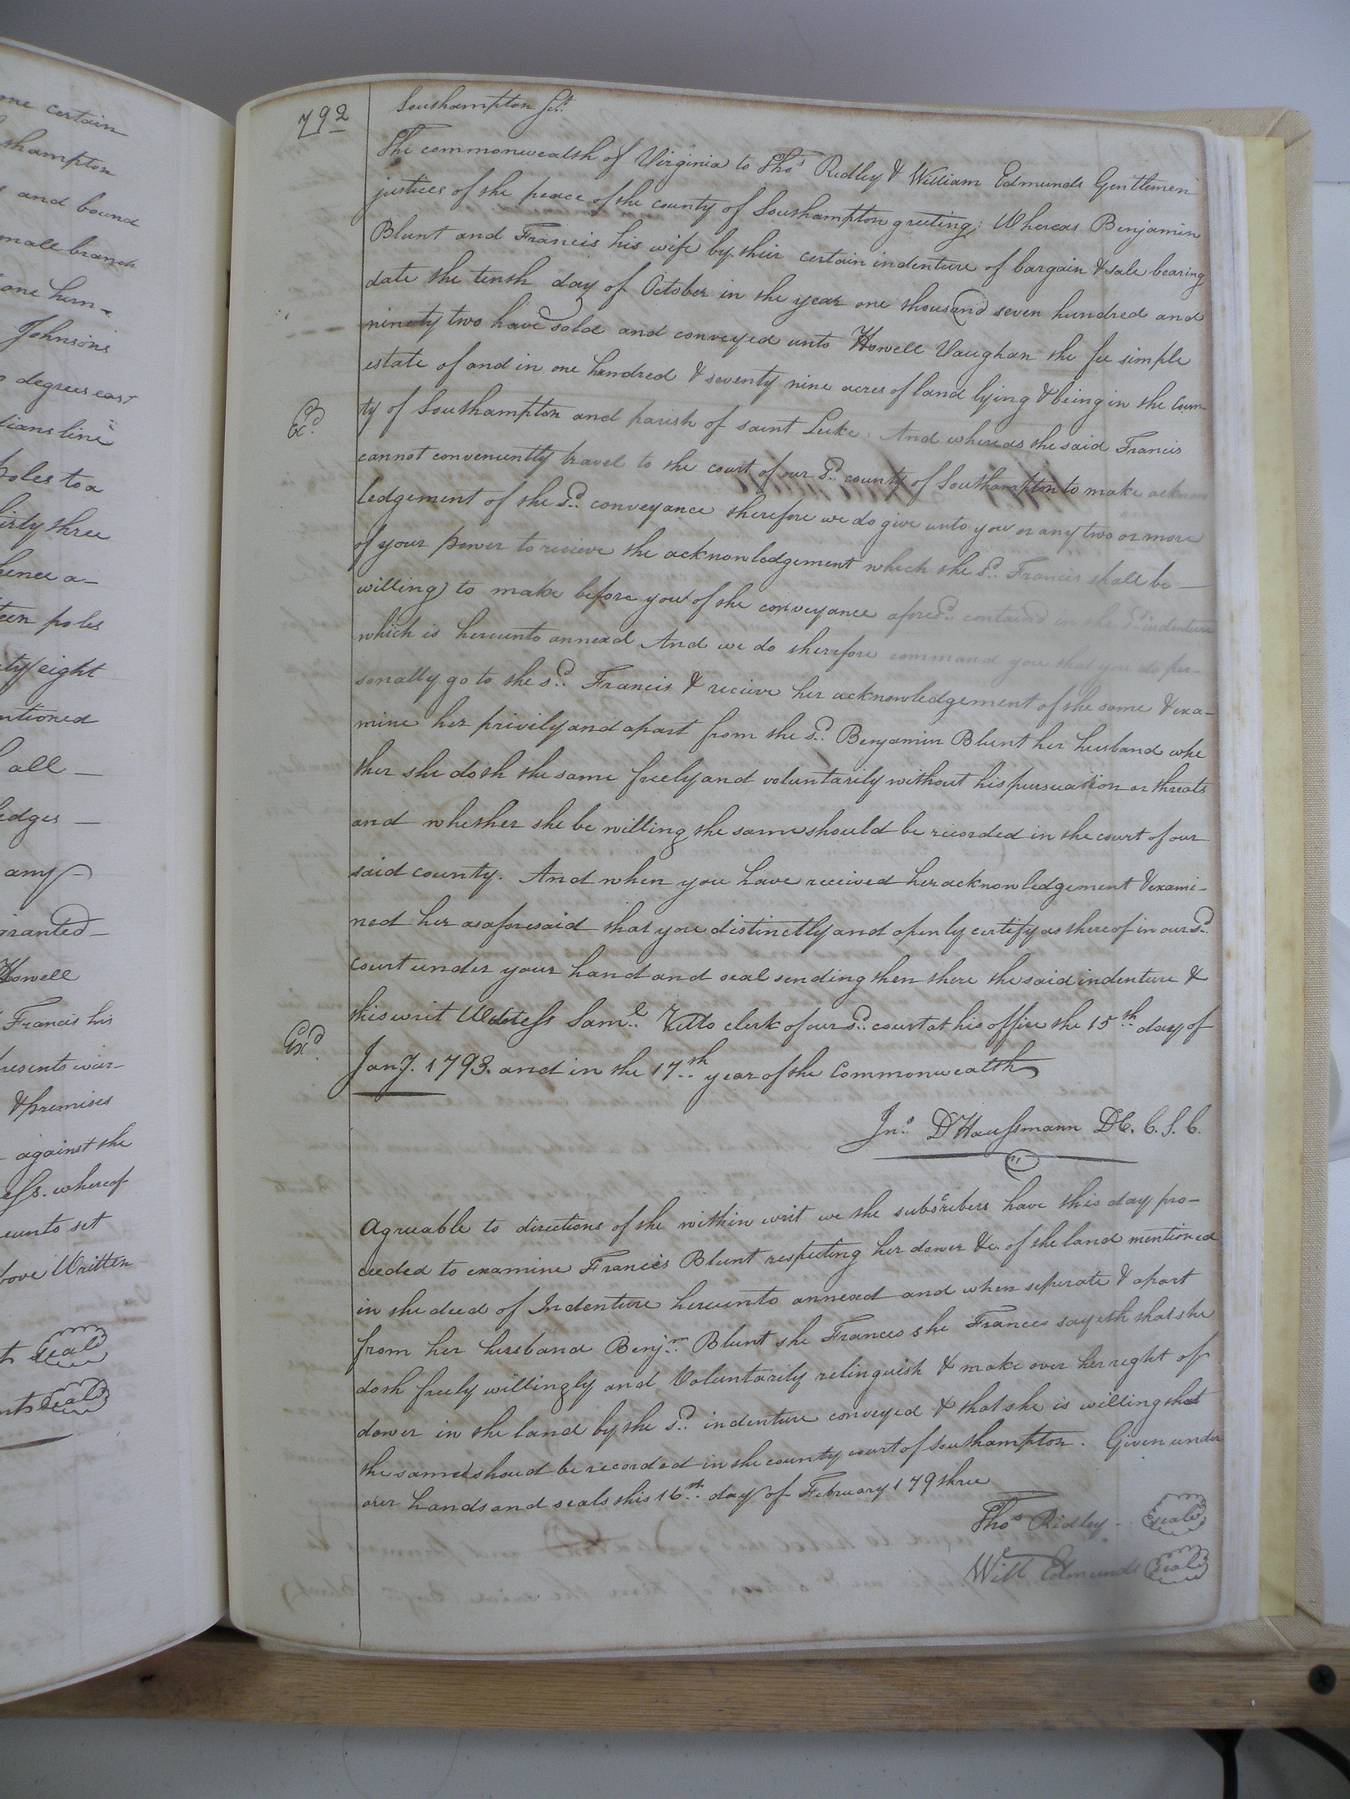 one certain
shampton
and bound
small branch
one hun-
Johnsons
degrees east
tians line
poles to a
irty three
hence a-
teen poles
ty eight
entioned
all —
edges —
any
granted —
Howell
Francis his
presents war-
& premises
against the
ess. whereof
eunto set
bove Written
Seal
Seal
792
Southampton Sct.
The commonwealth of Virginia to Thos. Ridley & William Edmunds Gentlemen
justices of the peace of the county of Southampton greeting: Whereas Benjamin
Blunt and Francis his wife by their certain indenture of bargain & sale bearing
date the tenth day of October in the year one thousand seven hundred and
ninety two have sold and conveyed unto Howell Vaughan the fee simple
estate of and in one hundred & seventy nine acres of land lying & being in the coun-
Exd.
ty of Southampton and parish of saint Luke. And whereas the said Francis
cannot conveniently travel to the court of our Sd. county of Southampton to make acknow
ledgement of the Sd. conveyance therefore we do give unto you or any two or more
of your power to recieve the acknowledgement which the Sd. Francis shall be —
willing) to make before you of the conveyance aforesd. contained in the Sd. indenture
which is hereunto annexd And we do therefore command you that you do per-
sonally go to the sd. Francis & recieve her acknowledgement of the same & exa-
mine her privily and apart from the Sd. Benjamin Blunt her husband whe
ther she doth the same freely and voluntarily without his pursuation or threats
and whether she be willing the same should be recorded in the court of our
said county. And when you have received her acknowledgement & exami-
ned her as aforesaid that you distinctly and openly certify as thereof in our Sd.
court under your hand and seal sending then there the said indenture &
Exd.
this writ Witness Saml. Kello clerk of our sd. court at his office the 15th day of
Jany. 1793. and in the 17th year of the Commonwealth
Jno. D Haussmann DC. C. S. C.
Agreeable to directions of the within writ we the subscribers have this day pro-
ceeded to examine Francis Blunt respecting her dower &c. of the land mentioned
in the deed of Indenture hereunto annexed and when seperate & apart
from her husband Benjn. Blunt she Frances she Frances sayeth that she
doth freely willingly and Voluntarily relinquish & make over her right of
dower in the land by the sd. indenture conveyed & that she is willing that
the same shoud be recorded in the county court of Southampton. Given under
our hands and seals this 16th day of February 179three
Thos. Ridley Seal
Will Edmunds Seal